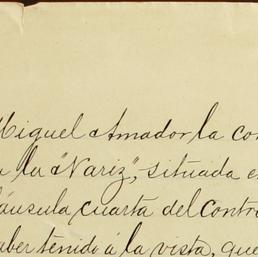 Miguel Amador la con
a la "Nariz", situada e
láusula cuarta del Contr
aber tenido á la vista, que